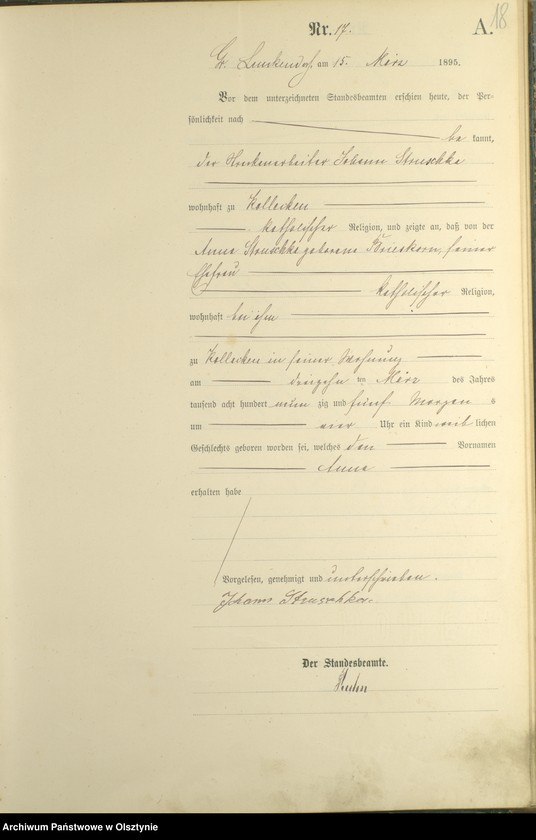 18
Nr. 17. A.
am 15. März 1895.
Vor dem unterzeichneten Standesbeamten erschien heute, der Per-
sönlichkeit nach
be kannt,
der Johann Struschka
wohnhaft zu Kallecken
katholischer Religion, und zeigte an, daß von der
Anna Struschka geborene Krieskorn, seiner
Ehefrau
katholischer Religion,
wohnhaft bei ihm
zu Kallecken in seiner Wohnung
am dreizehn ten März des Jahres
tausend acht hundert neun zig und fünf Morgen s
um vier Uhr ein Kind weib lichen
Geschlechts geboren worden sei, welches den Vornamen
Anna
erhalten habe
Vorgelesen, genehmigt und unterschrieben.
Johann Struschka.
Der Standesbeamte.
Archiwum Państwowe w Olsztynie